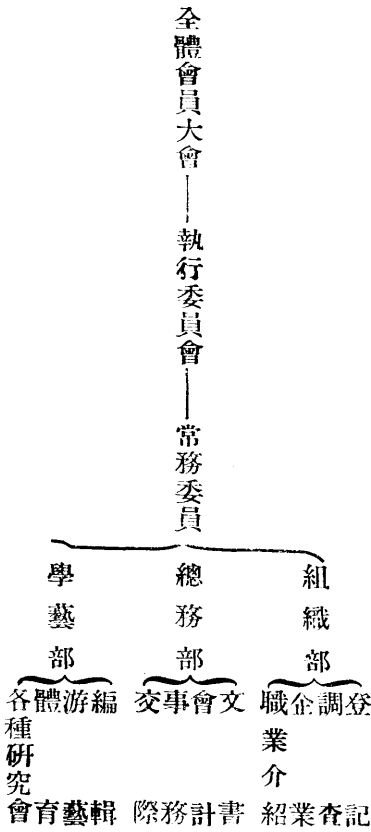 全體會員大會
執行委員會
常務委員
組織部
登記
調查
企業
職業介紹
總務部
文書
會計
事務
交際
學藝部
編輯
游藝
體育
各種研究會